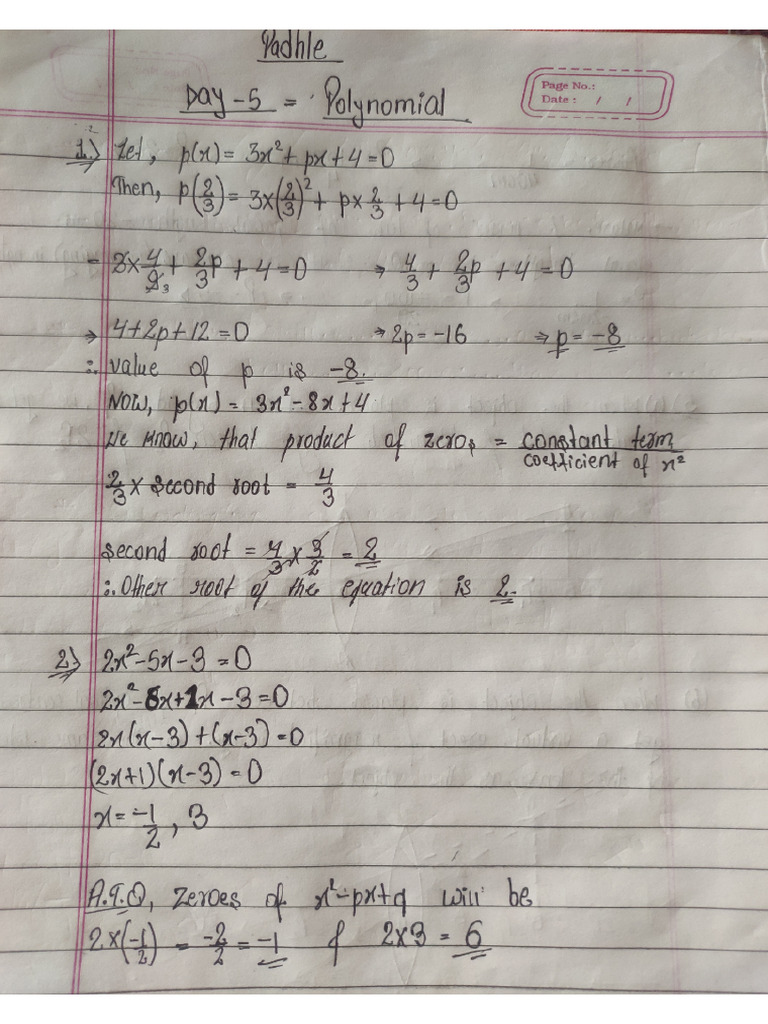 Padhle
Day - 5 = Polynomial
Page No.:
Date : / /
1.) Let, p(x) = 3x² + px + 4 = 0
Then, p(2/3) = 3×(2/3)² + p× 2/3 + 4 = 0
= 3× 4/9₃ + 2p/3 + 4 = 0 → 4/3 + 2p/3 + 4 = 0
→ 4 + 2p + 12 = 0 → 2p = -16 ⇒ p = -8
∴ value of p is -8.
Now, p(x) = 3x² - 8x + 4
We know, that product of zeros = constant term / coefficient of x²
2/3 × second root = 4/3
second root = 4/3 × 3/2 = 2
∴ Other root of the equation is 2.
2.) 2x² - 5x - 3 = 0
2x² - 6x + 1x - 3 = 0
2x(x-3) + (x-3) = 0
(2x+1)(x-3) = 0
x = -1/2 , 3
A.T.Q, zeroes of x² - px + q will be
2×(-1/2) = -2/2 = -1 & 2×3 = 6